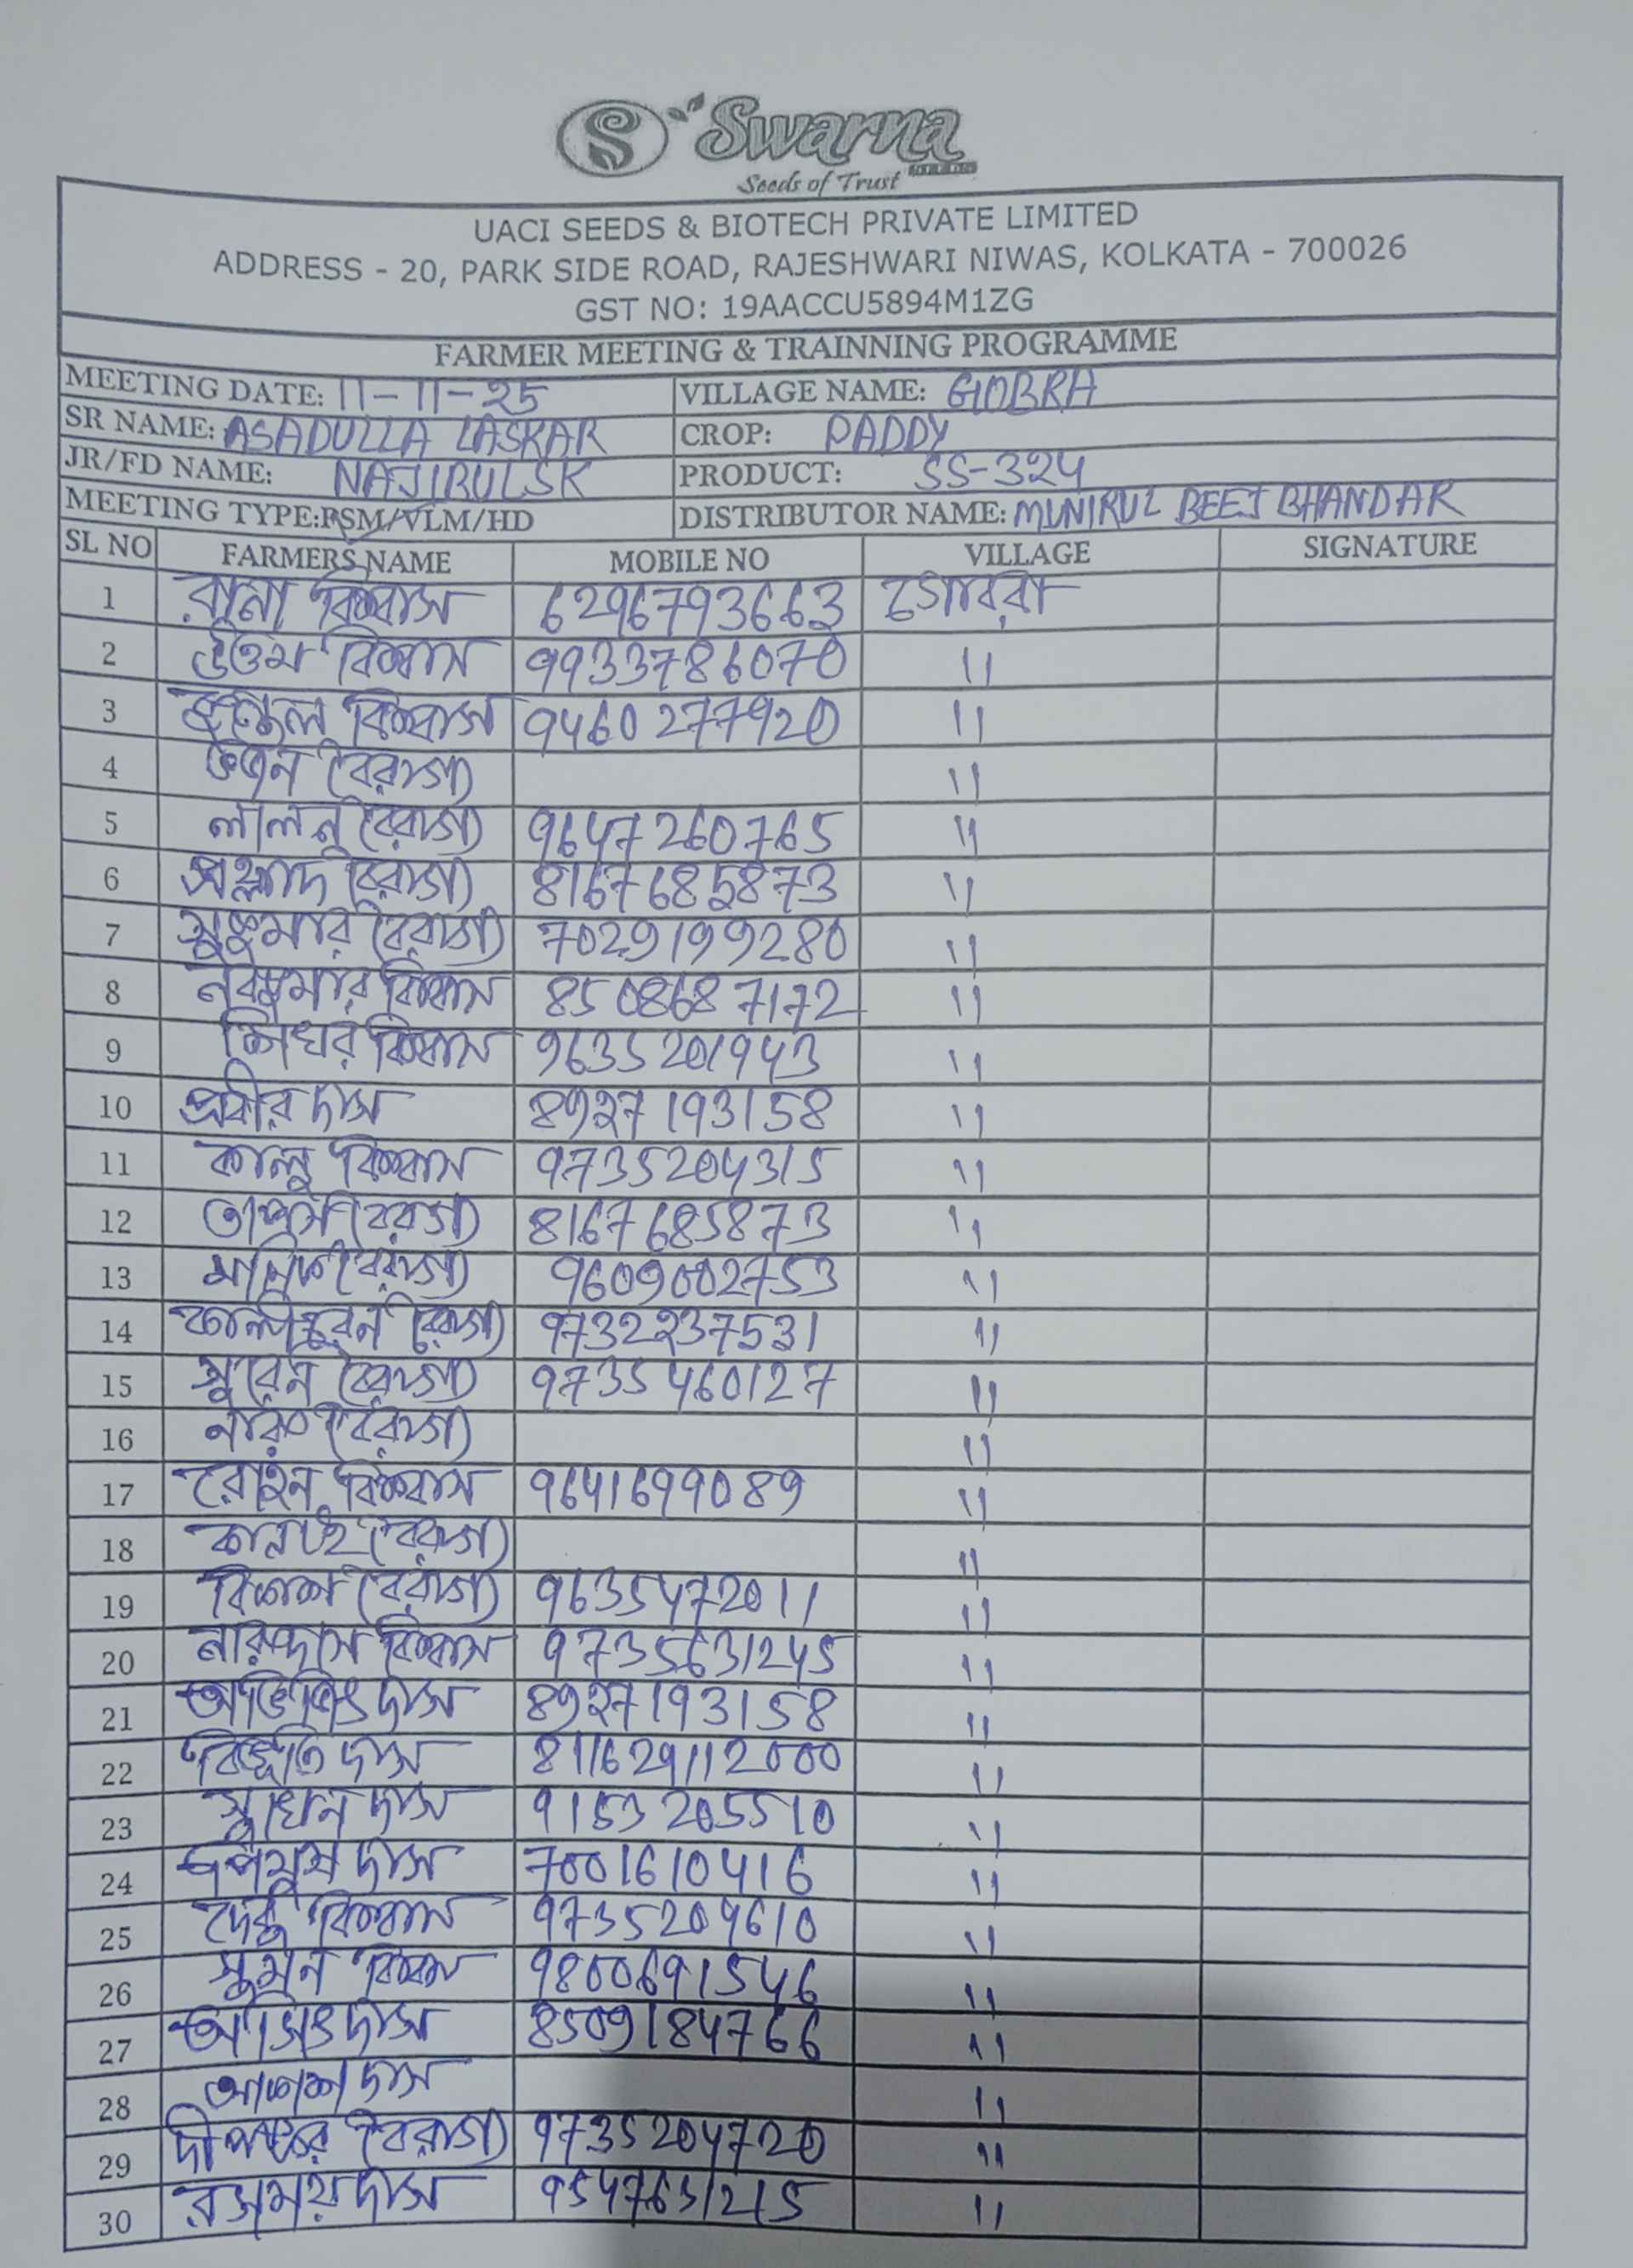 Swarna
Seeds of Trust
UACI SEEDS & BIOTECH PRIVATE LIMITED
ADDRESS - 20, PARK SIDE ROAD, RAJESHWARI NIWAS, KOLKATA - 700026
GST NO: 19AACCU5894M1ZG
FARMER MEETING & TRAINNING PROGRAMME
MEETING DATE: 11-11-25 VILLAGE NAME: GOBRA
SR NAME: ASADULLA LASKAR CROP: PADDY
JR/FD NAME: NAJIBUL SK PRODUCT: SS-324
MEETING TYPE:PSM/VLM/HD DISTRIBUTOR NAME: MUNIRUL BEEJ BHANDAR
SL NO FARMERS NAME MOBILE NO VILLAGE SIGNATURE
1 রানা বিশ্বাস 6296793663 গোবরা
2 উত্তম বিশ্বাস 9933786070 "
3 বিশ্বাস 9460277920 "
4 ভজন বৈরাগ্য "
5 লালন বৈরাগ্য 9647260765 "
6 প্রহ্লাদ বৈরাগ্য 8167685873 "
7 সুকুমার বৈরাগ্য 7029199280 "
8 নবকুমার বিশ্বাস 8508687172 "
9 বিশ্বাস 9635201943 "
10 প্রবীর দাস 8927193158 "
11 কালু বিশ্বাস 9735204315 "
12 তাপস বৈরাগ্য 8167685873 "
13 মানিক বৈরাগ্য 9609002753 "
14 বৈরাগ্য 9732237531 "
15 সুরেন বৈরাগ্য 9735460127 "
16 বৈরাগ্য "
17 রোহন বিশ্বাস 9641699089 "
18 কানাই বৈরাগ্য "
19 বিকাশ বৈরাগ্য 9635472011 "
20 বিশ্বাস 9735631245 "
21 অভিজিৎ দাস 8927193158 "
22 দাস 811629112000 "
23 সুখেন দাস 9153205510 "
24 দাস 7001610416 "
25 দেবু বিশ্বাস 9735209610 "
26 সুমন বিশ্বাস 9800691546 "
27 অসিত দাস 8509184766 "
28 আকাশ দাস "
29 দীপঙ্কর বৈরাগ্য 9735204720 "
30 রসময় দাস "